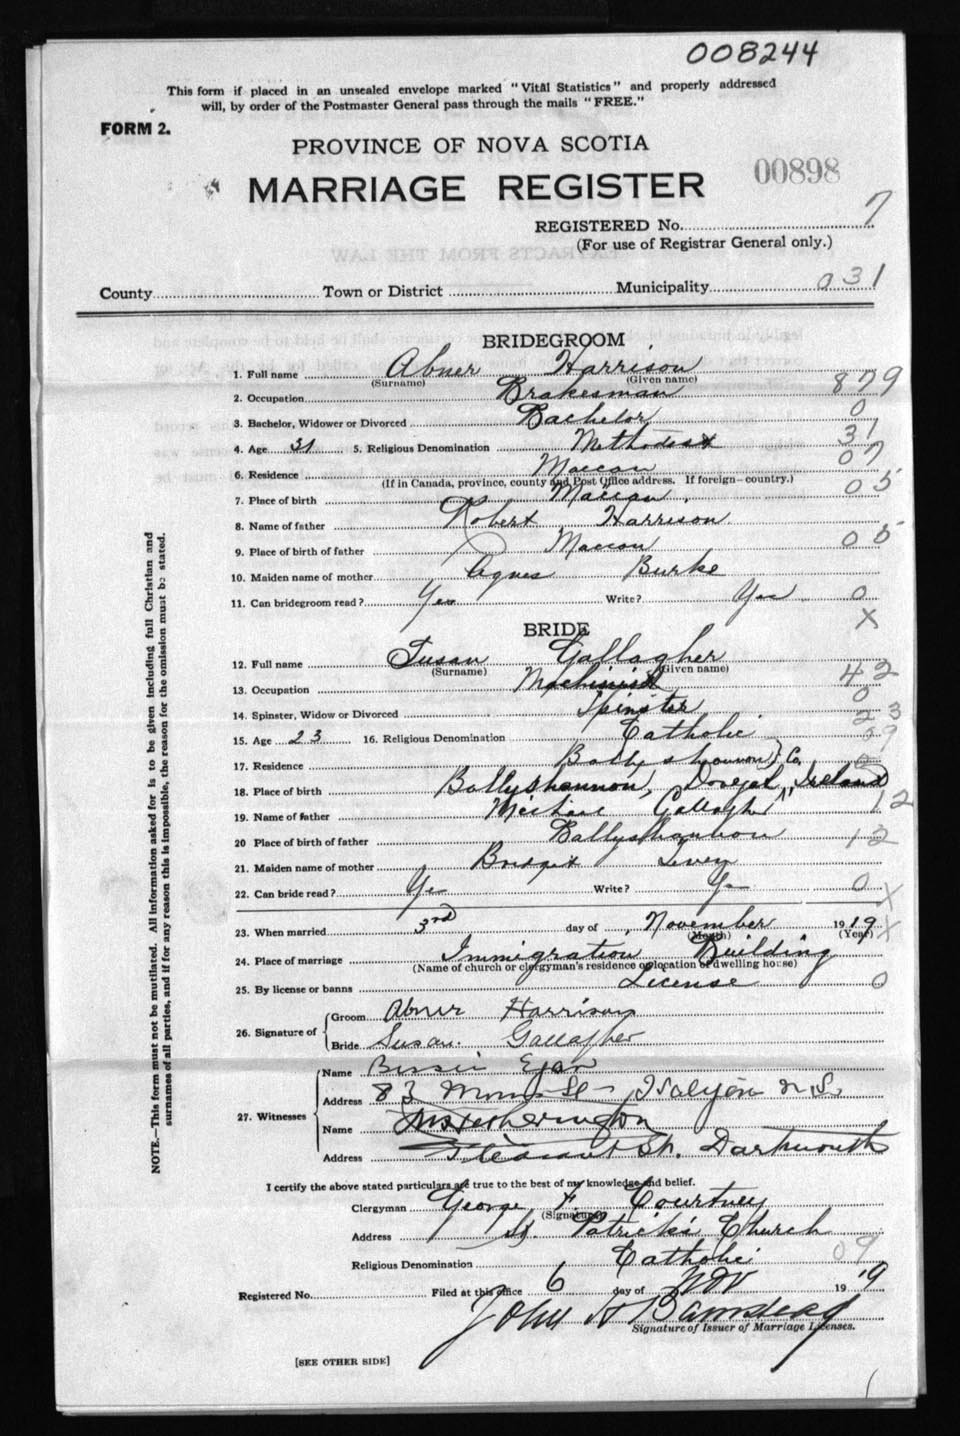 008244
This form if placed in an unsealed envelope marked "Vital Statistics" and properly addressed
will, by order of the Postmaster General pass through the mails "FREE."
FORM 2.
PROVINCE OF NOVA SCOTIA
00898
MARRIAGE REGISTER
REGISTERED No. 7
(For use of Registrar General only.)
County Town or District Municipality 031
BRIDEGROOM
1. Full name Abner Harrison
(Surname) (Given name)
2. Occupation Brakesman 879
3. Bachelor, Widower or Divorced Bachelor 0
4. Age 31 5. Religious Denomination Methodist 31
6. Residence Maccan 07
(If in Canada, province, county and Post Office address. If foreign-country.)
7. Place of birth Maccan 05
8. Name of father Robert Harrison
9. Place of birth of father Maccan 05
10. Maiden name of mother Agnes Burke
11. Can bridegroom read? Yes Write? Yes 0
X
BRIDE
12. Full name Susan Gallagher
(Surname) (Given name)
13. Occupation Machinist 42
0
14. Spinster, Widow or Divorced Spinster 23
15. Age 23 16. Religious Denomination Catholic 09
17. Residence Ballyshannon Co.
18. Place of birth Ballyshannon, Donegal, Ireland
19. Name of father Micheal Gallagher 12
20 Place of birth of father Ballyshannon 12
21. Maiden name of mother Bridget
22. Can bride read? Yes Write? Yes 0 X
23. When married 3rd day of November 1919 X
(Month) (Year)
24. Place of marriage Immigration Building
(Name of church or clergyman's residence or location of dwelling house)
25. By license or banns License 0
26. Signature of Groom Abner Harrison
Bride Susan Gallagher
27. Witnesses Name Bessie Egan
Address 83 St N.S.
Name
Address Pleasant St. Dartmouth
I certify the above stated particulars are true to the best of my knowledge and belief.
Clergyman George F. Courtney
(Signature)
Address St. Patrick's Church
Religious Denomination Catholic 09
Registered No. Filed at this office 6 day of Nov 1919
John A Barnstead
Signature of Issuer of Marriage Licenses.
[SEE OTHER SIDE]
NOTE.—This form must not be mutilated. All information asked for is to be given including full Christian and
surnames of all parties, and if for any reason this is impossible, the reason for the omission must be stated.